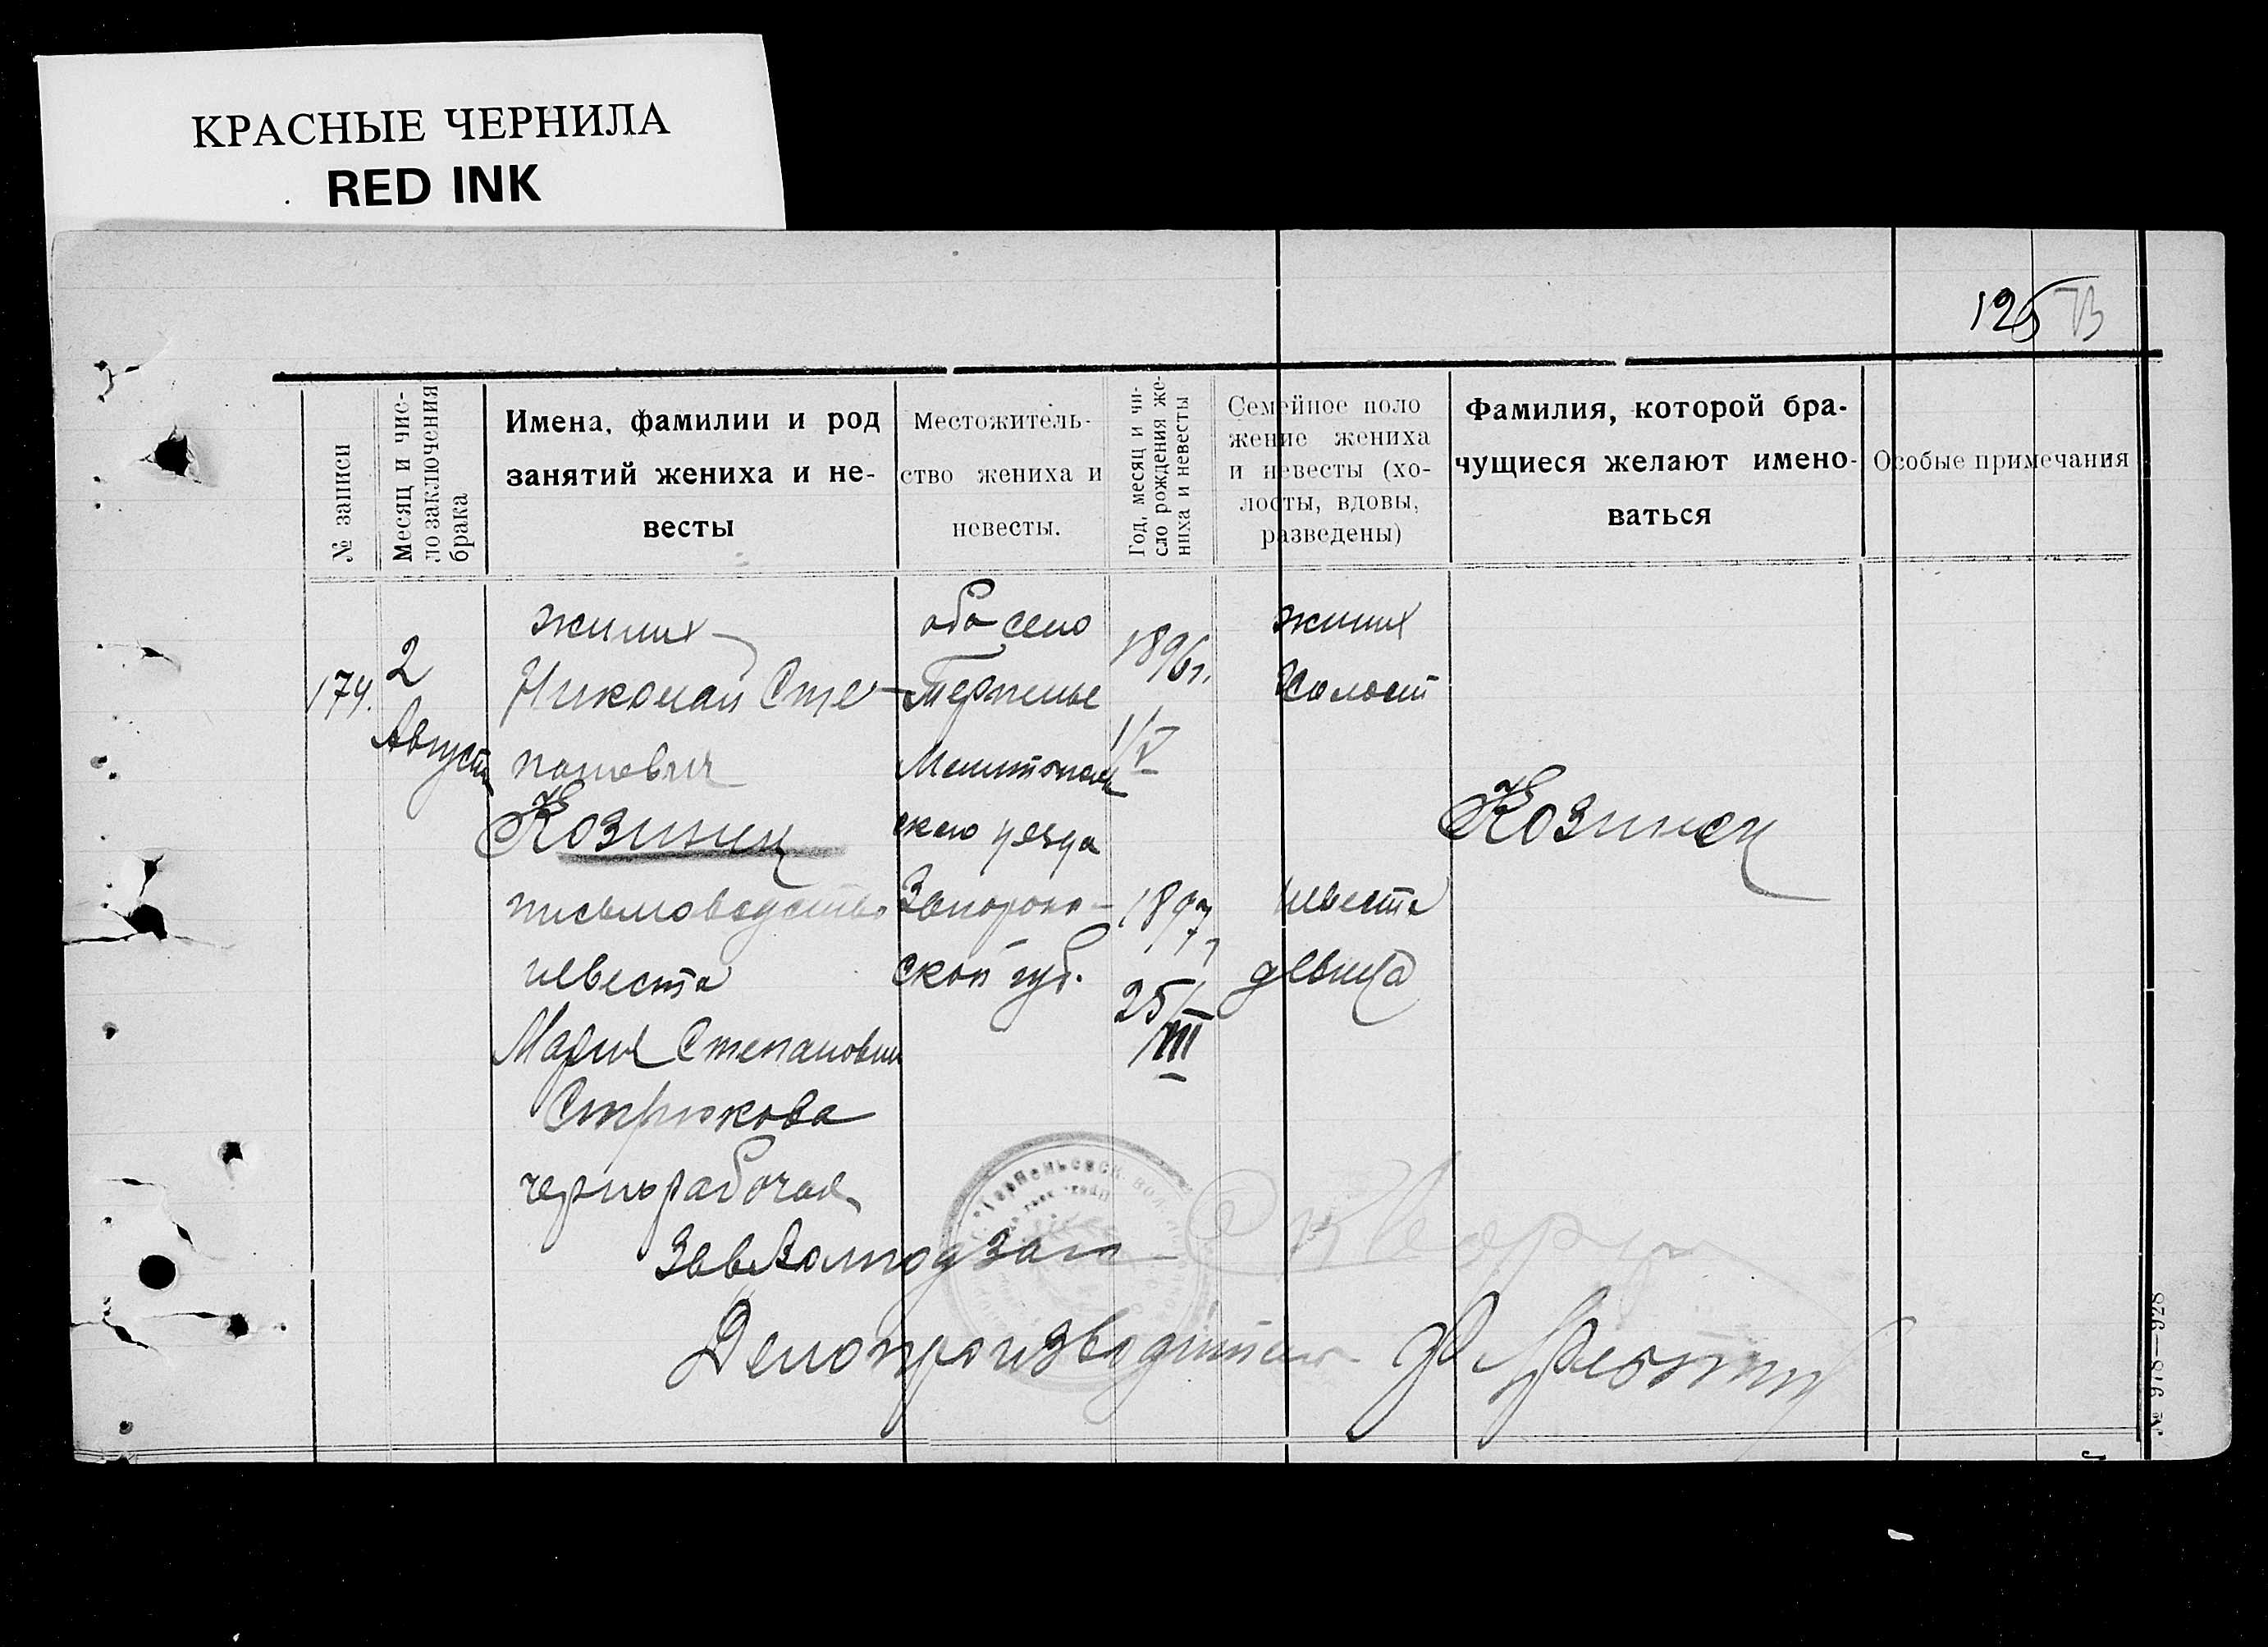 КРАСНЫЕ ЧЕРНИЛА
RED INK
125
№ записи
Месяц и чис-
ло заключения
брака
Имена, фамилии и род
занятий жениха и не-
весты
Местожитель-
ство жениха и
невесты.
Год, месяц и чи-
сло рождения же-
ниха и невесты
Семейное поло
жение жениха
и невесты (хо-
лосты, вдовы,
разведены)
Фамилия, которой бра-
чущиеся желают имено-
ваться
Особые примечания
174.
2
Августа
жених
Николай Сте-
панович
Козинец
письмоводство
невеста
Мария Степановна
Стрюкова
чернорабочая
оба село
Терпенье
Мелитополь
ского уезда
Запорож-
ской губ.
1896г.
1/V
1897г
25/
III
жених
Холост
невеста
девица
Козинец
ЗавВолподзагс
Делопроизводитель
№ 978—928